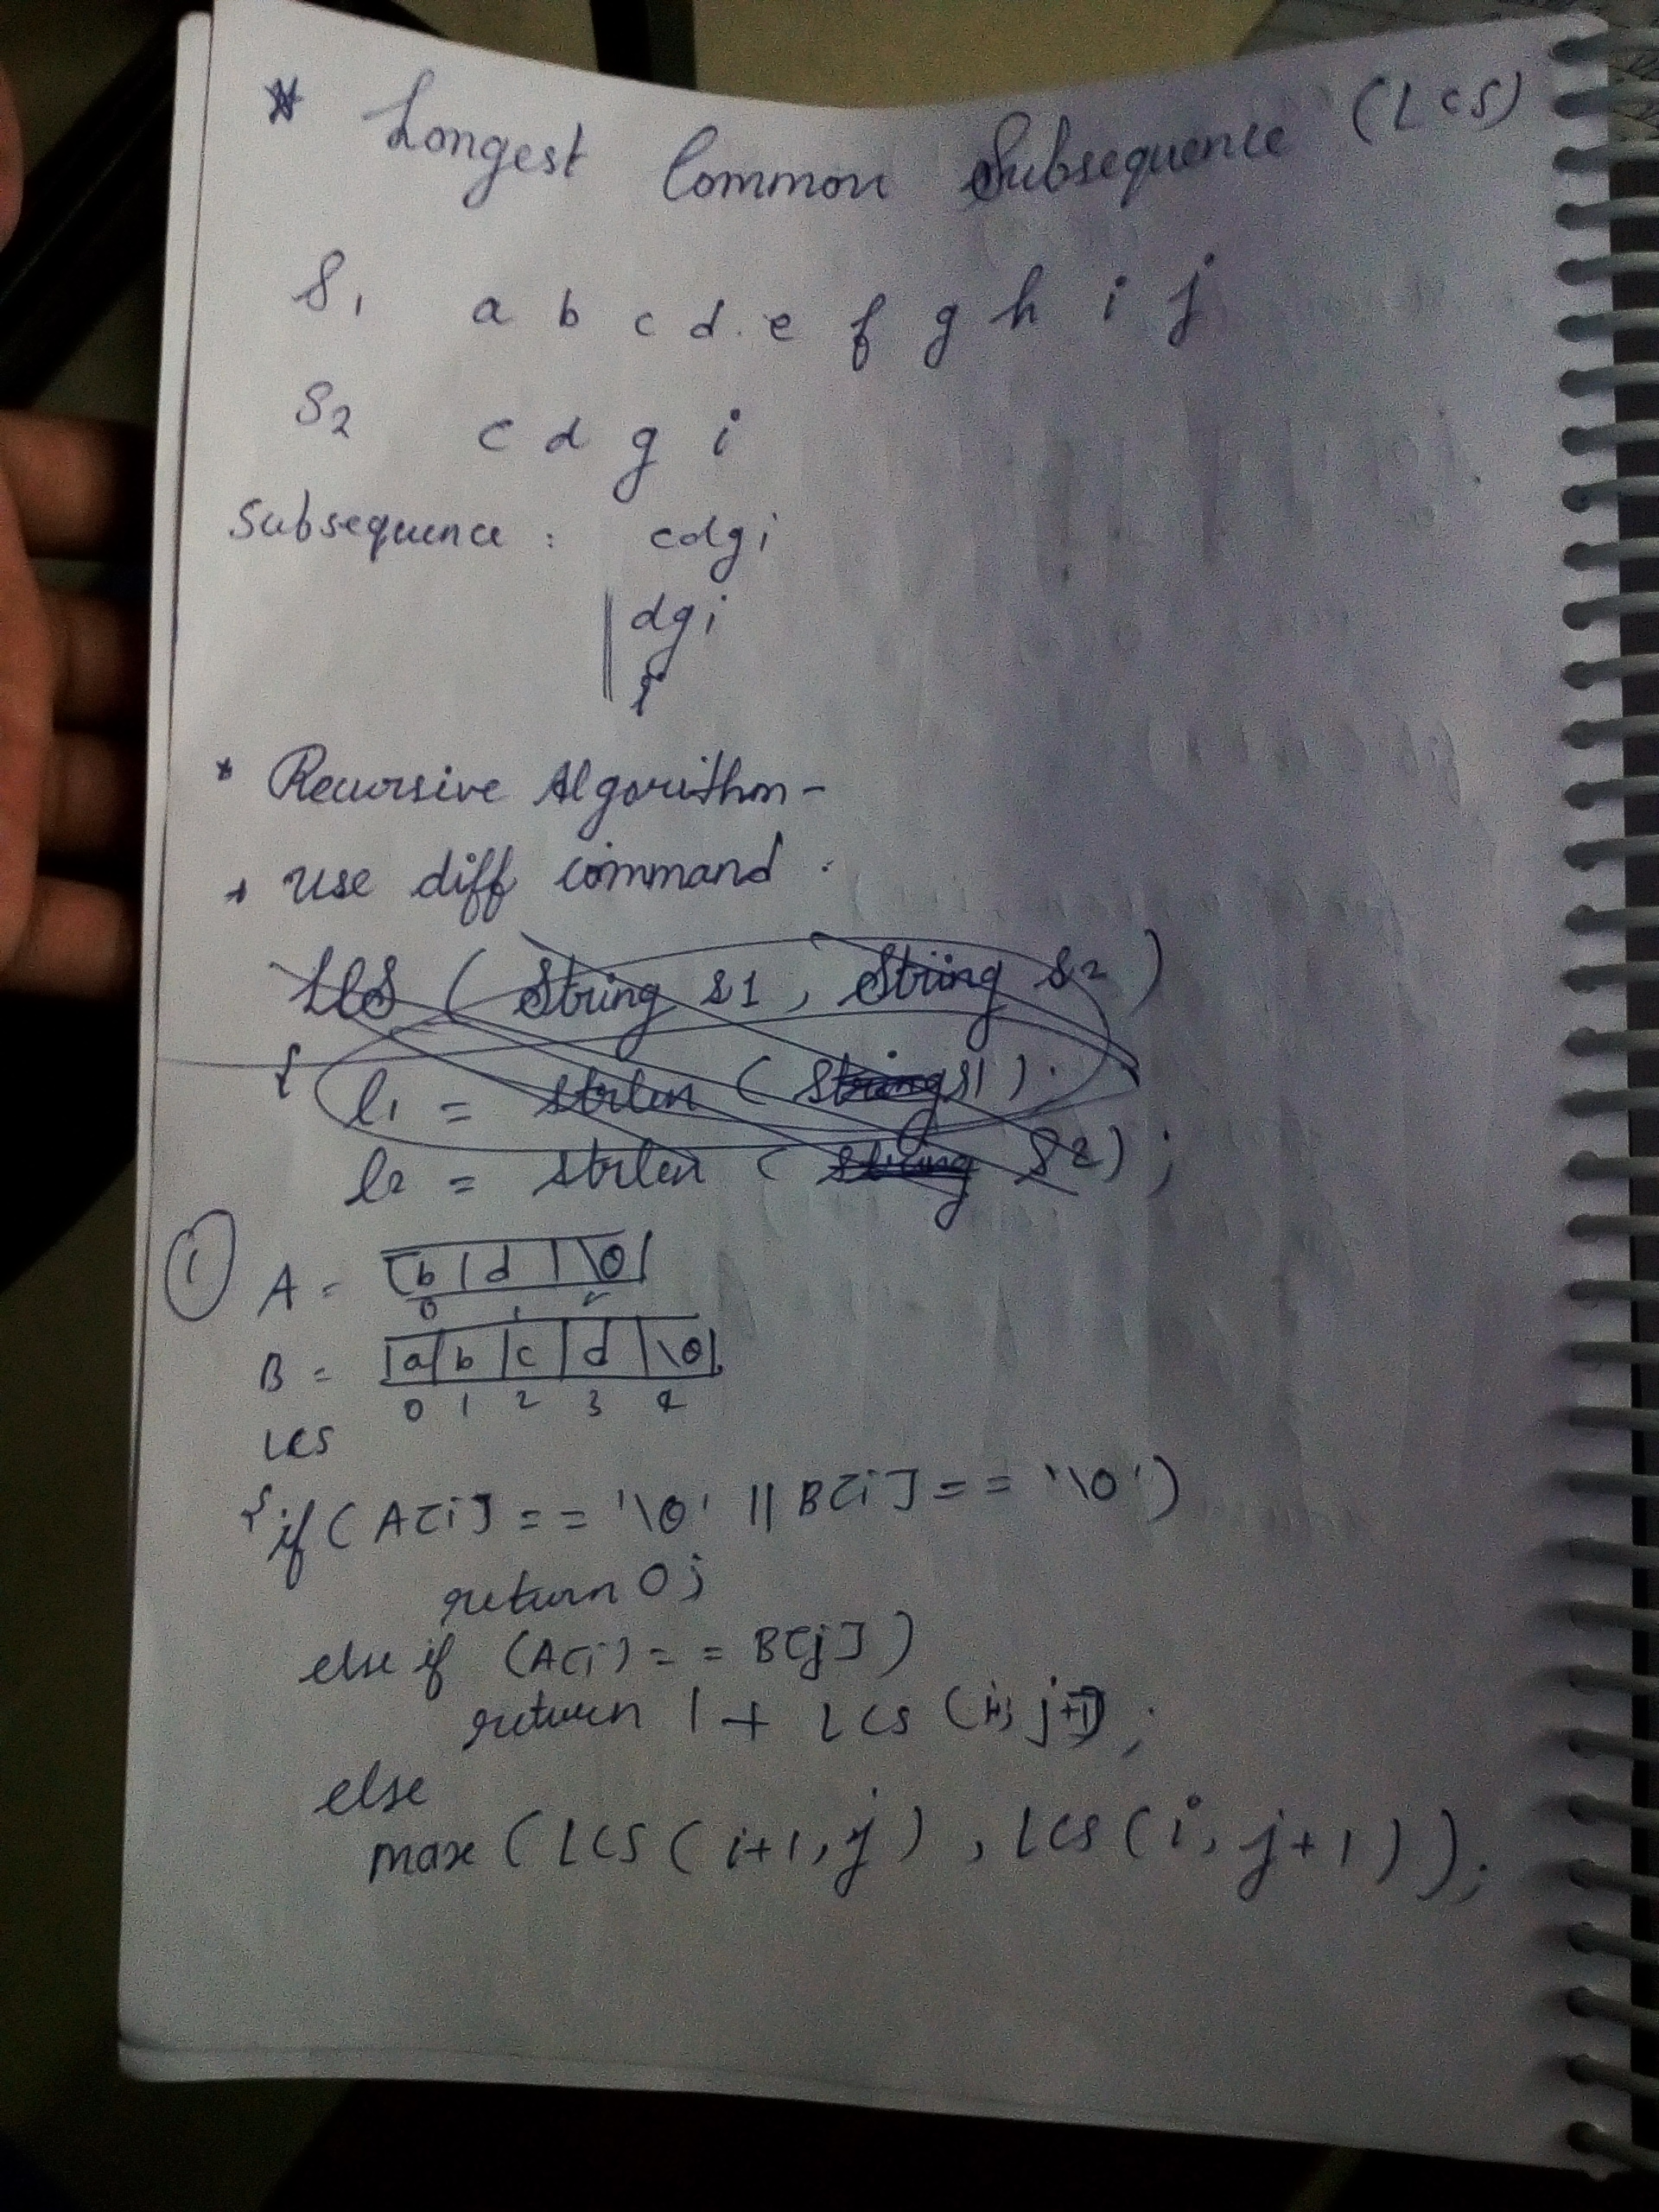 * Longest Common Subsequence (LCS)
S1 a b c d e f g h i j
S2 c d g i
Subsequence : cdgi
dgi
i
* Recursive Algorithm -
* Use diff command.
LCS ( String s1, String s2 )
{ l1 = strlen ( String s1 ).
l2 = strlen ( string s2 ) ;
① A = b | d | \0
0 1 2
B = a | b | c | d | \0
0 1 2 3 4
LCS
{ if ( A[i] == '\0' || B[i] == '\0' )
return 0;
else if (A[i] == B[j])
return 1 + LCS ( j+1) ;
else
max ( LCS ( i+1, j ) , LCS ( i, j+1 ) ) ;